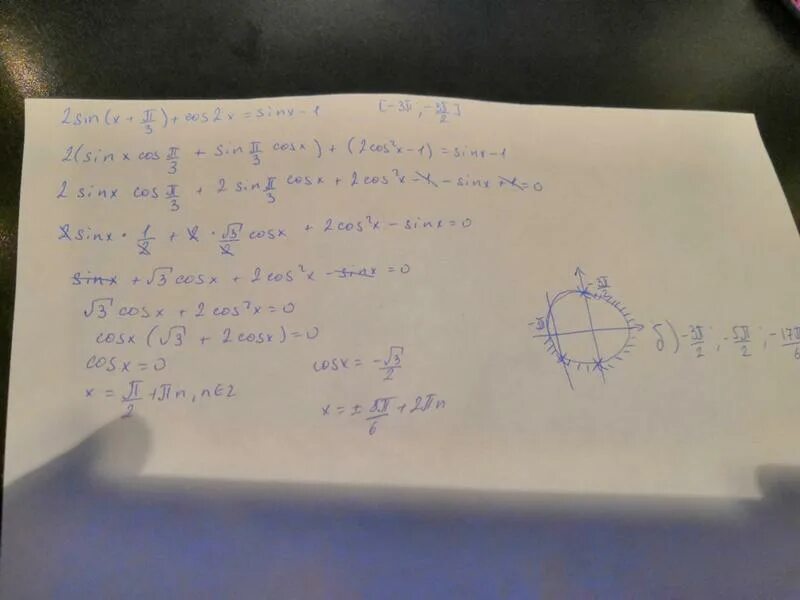 2sin(x + π/3) + cos2x = sinx - 1 [-3π; -3π/2]
2(sin x cos π/3 + sin π/3 cosx) + (2cos²x - 1) = sinx - 1
2 sinx cos π/3 + 2 sin π/3 cosx + 2cos²x - 1 - sinx + 1 = 0
2sinx · 1/2 + 2 · √3/2 cosx + 2cos²x - sinx = 0
sinx + √3 cosx + 2cos²x - sinx = 0
√3 cosx + 2cos²x = 0
cosx (√3 + 2cosx) = 0
cosx = 0 cosx = -√3/2
x = π/2 + πn, n∈Z x = ± 5π/6 + 2πn
-3π/2
-3π
б) -3π/2; -5π/2; -17π/6